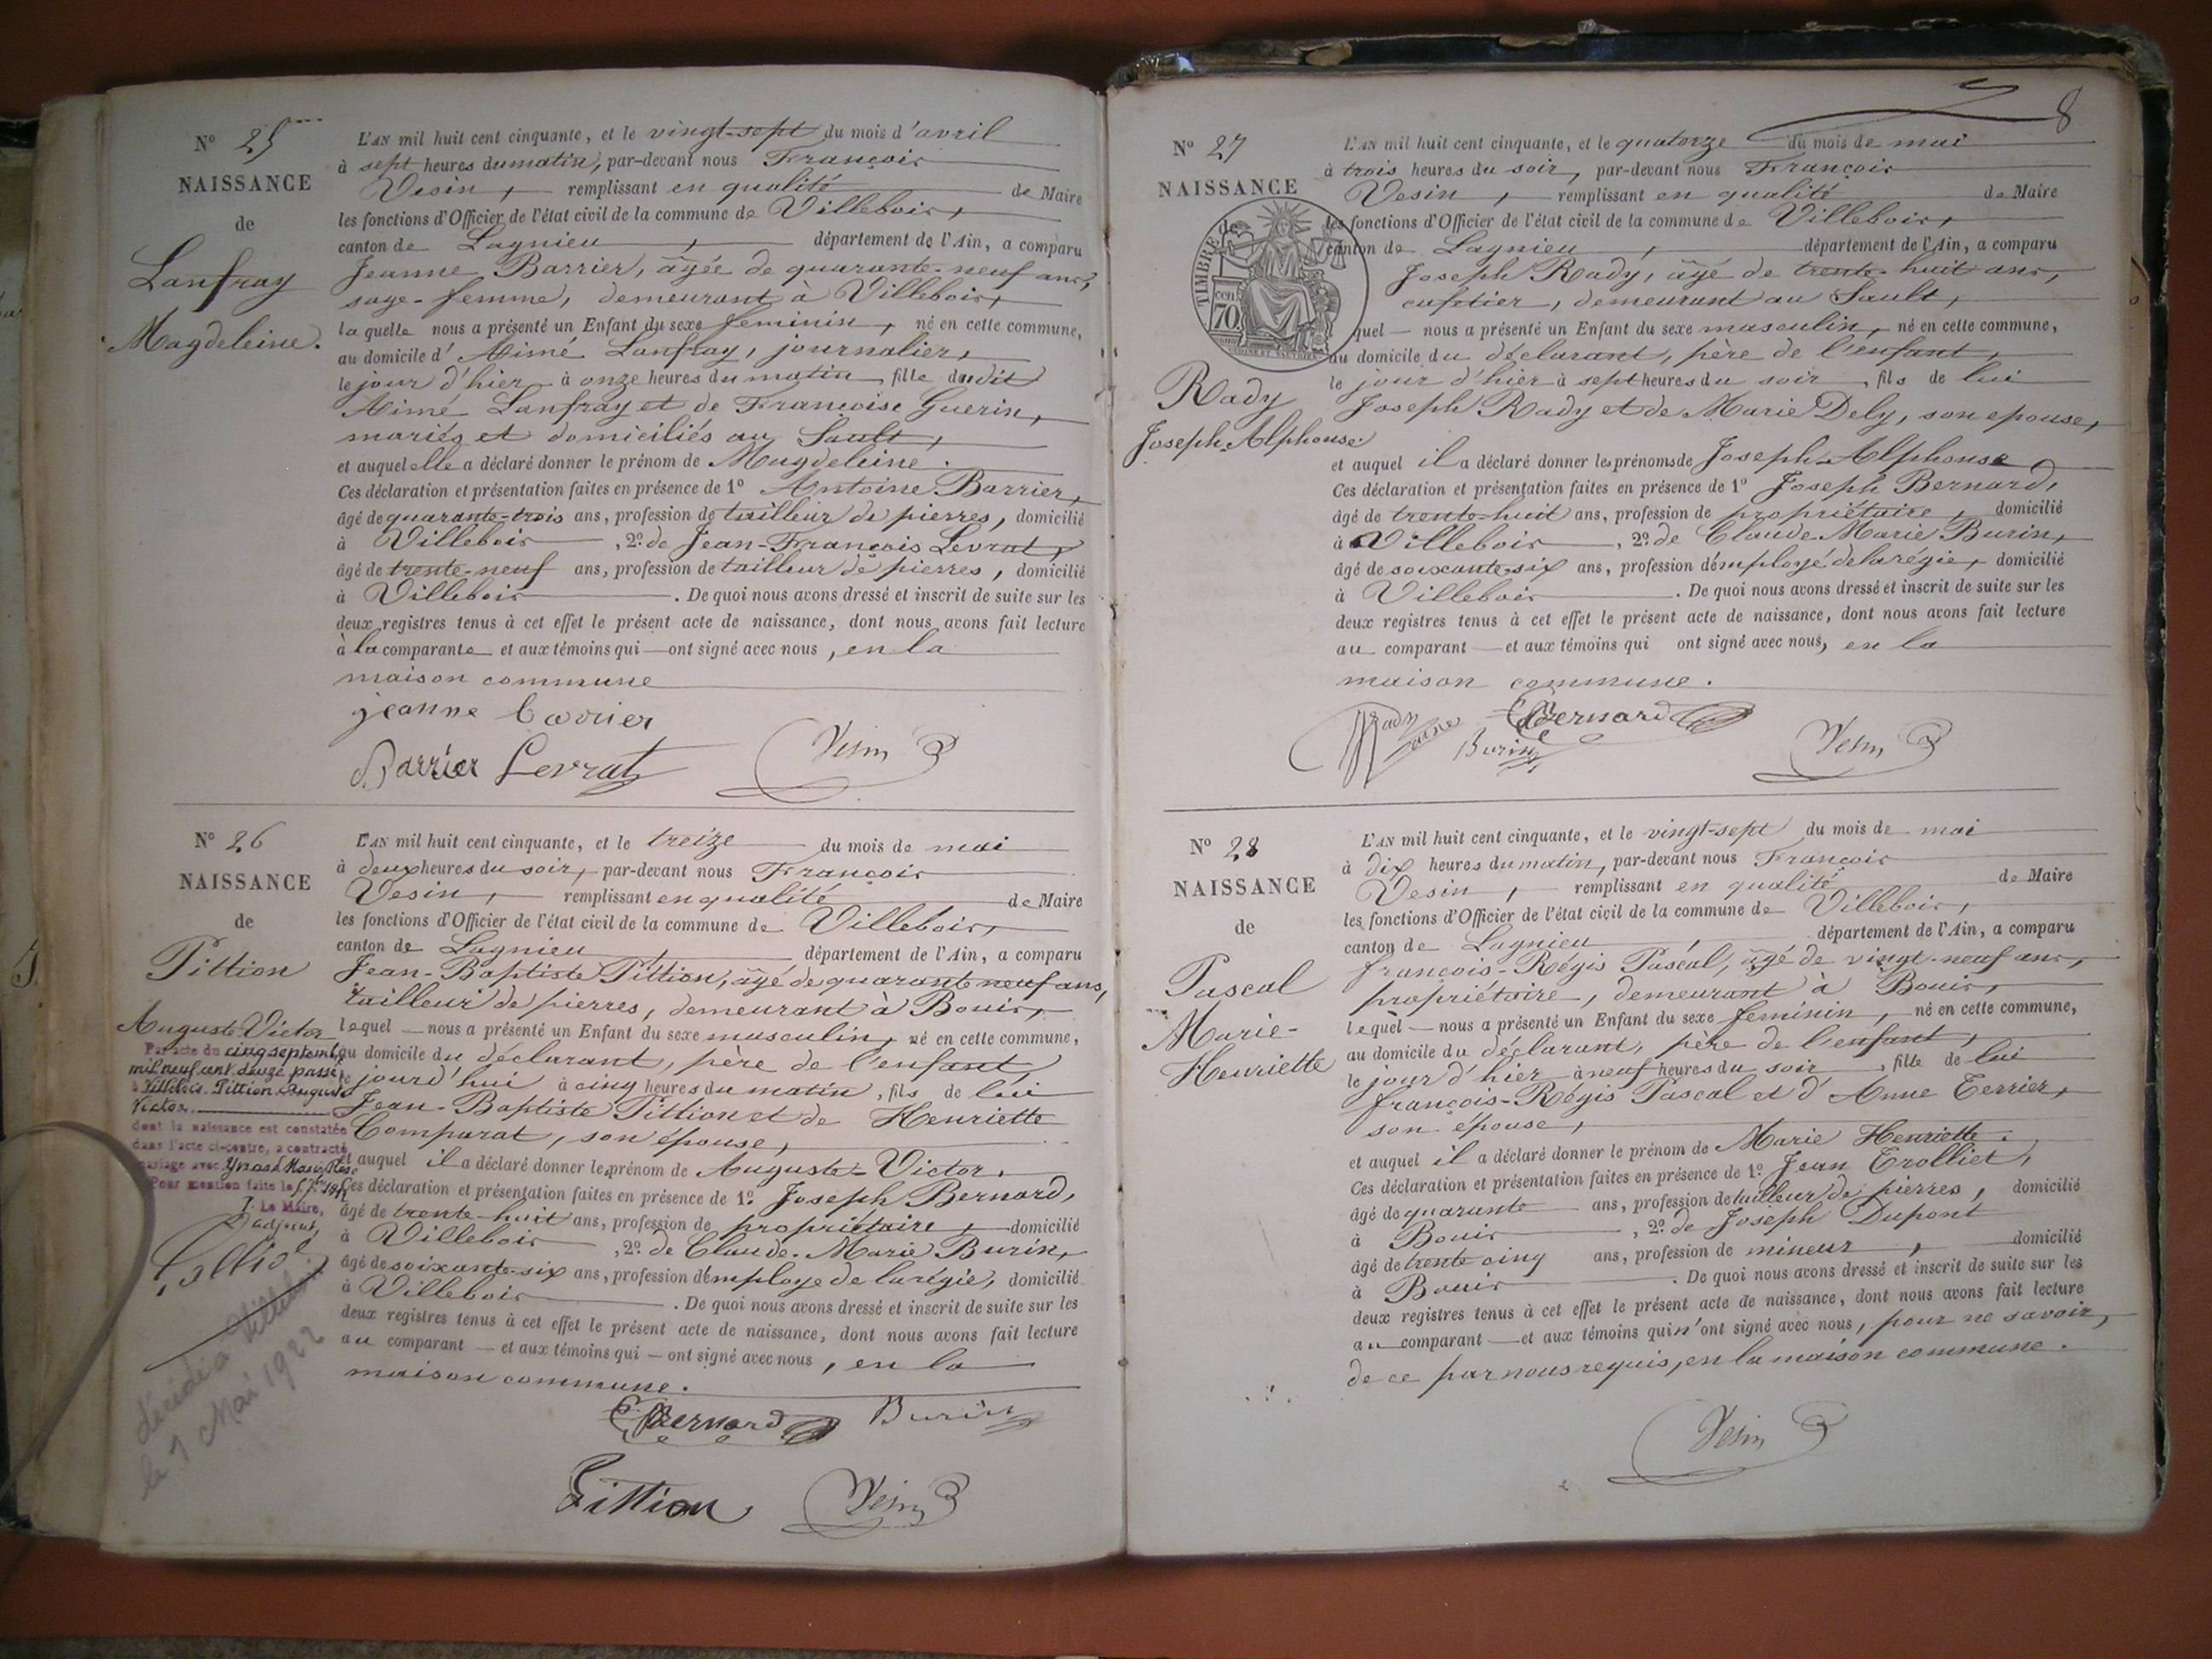 N° 25
NAISSANCE
de
Lanfray
Magdeleine.
L'AN mil huit cent cinquante, et le vingt-sept du mois d'avril
à sept heures du matin, par-devant nous François
Vesin, remplissant en qualité de Maire
les fonctions d'Officier de l'état civil de la commune de Villebois,
canton de Lagnieu, département de l'Ain, a comparu
Jeanne Barrier, âgée de quarante-neuf ans,
sage-femme, demeurant à Villebois,
laquelle nous a présenté un Enfant du sexe féminin, né en cette commune,
au domicile d'Aimé Lanfray, journalier,
le jour d'hier à onze heures du matin, fille dudit
Aimé Lanfray et de Françoise Guerin,
mariés et domiciliés au Sault,
et auquel elle a déclaré donner le prénom de Magdeleine.
Ces déclaration et présentation faites en présence de 1° Antoine Barrier,
âgé de quarante-trois ans, profession de tailleur de pierres, domicilié
à Villebois, 2° de Jean-François Levrat,
âgé de trente-neuf ans, profession de tailleur de pierres, domicilié
à Villebois. De quoi nous avons dressé et inscrit de suite sur les
deux registres tenus à cet effet le présent acte de naissance, dont nous avons fait lecture
à la comparante et aux témoins qui ont signé avec nous, en la
maison commune
jeanne barrier
Barrier Levrat Vesin
N° 26
NAISSANCE
de
Pittion
Auguste Victor
Par acte du cinq septembre
mil neuf cent douze passé
à Villebois. Pittion Auguste
Victor
dont la naissance est constatée
dans l'acte ci-contre, a contracté
mariage avec Ynard Marie Rose
Pour mention faite le
Le Maire,
L'adjoint,
décédé à Villebois
le 7 Mai 1922
L'AN mil huit cent cinquante, et le treize du mois de mai
à deux heures du soir, par-devant nous François
Vesin, remplissant en qualité de Maire
les fonctions d'Officier de l'état civil de la commune de Villebois,
canton de Lagnieu, département de l'Ain, a comparu
Jean-Baptiste Pittion, âgé de quarante neuf ans,
tailleur de pierres, demeurant à Bouis,
lequel nous a présenté un Enfant du sexe masculin, né en cette commune,
au domicile du déclarant, père de l'enfant,
le jourd'hui à cinq heures du matin, fils de lui
Jean-Baptiste Pittion et de Henriette
Comparat, son épouse,
et auquel il a déclaré donner le prénom de Auguste-Victor.
Ces déclaration et présentation faites en présence de 1° Joseph Bernard,
âgé de trente-huit ans, profession de propriétaire, domicilié
à Villebois, 2° de Claude-Marie Burin,
âgé de soixante-six ans, profession d'employé de la régie, domicilié
à Villebois. De quoi nous avons dressé et inscrit de suite sur les
deux registres tenus à cet effet le présent acte de naissance, dont nous avons fait lecture
au comparant et aux témoins qui ont signé avec nous, en la
maison commune.
Bernard Burin
Pittion Vesin
8
N° 27
NAISSANCE
de
TIMBRE
cen. 70
Rady
Joseph-Alphonse.
L'AN mil huit cent cinquante, et le quatorze du mois de mai
à trois heures du soir, par-devant nous François
Vesin, remplissant en qualité de Maire
les fonctions d'Officier de l'état civil de la commune de Villebois,
canton de Lagnieu, département de l'Ain, a comparu
Joseph Rady, âgé de trente-huit ans,
caftier, demeurant au Sault,
quel nous a présenté un Enfant du sexe masculin, né en cette commune,
au domicile du déclarant, père de l'enfant,
le jour d'hier à sept heures du soir, fils de lui
Joseph Rady et de Marie Dely, son epouse,
et auquel il a déclaré donner les prénoms de Joseph-Alphonse
Ces déclaration et présentation faites en présence de 1° Joseph Bernard,
âgé de trente-huit ans, profession de propriétaire, domicilié
à Villebois, 2° de Claude Marie Burin,
âgé de soixante-six ans, profession d'employé de la régie, domicilié
à Villebois. De quoi nous avons dressé et inscrit de suite sur les
deux registres tenus à cet effet le présent acte de naissance, dont nous avons fait lecture
au comparant et aux témoins qui ont signé avec nous, en la
maison commune.
Rady Bernard
Burin Vesin
N° 28
NAISSANCE
de
Pascal
Marie-
Henriette
L'AN mil huit cent cinquante, et le vingt-sept du mois de mai
à dix heures du matin, par-devant nous François
Vesin, remplissant en qualité de Maire
les fonctions d'Officier de l'état civil de la commune de Villebois,
canton de Lagnieu, département de l'Ain, a comparu
françois-Régis Pascal, âgé de vingt-neuf ans,
propriétaire, demeurant à Bouis,
lequel nous a présenté un Enfant du sexe féminin, né en cette commune,
au domicile du déclarant, père de l'enfant,
le jour d'hier à neuf heures du soir, fille de lui
françois-Régis Pascal et d'Anne Terrier,
son épouse,
et auquel il a déclaré donner le prénom de Marie Henriette.
Ces déclaration et présentation faites en présence de 1° Jean Trolliet,
âgé de quarante ans, profession de tailleur de pierres, domicilié
à Bouis, 2° de Joseph Dupont
âgé de trente cinq ans, profession de mineur, domicilié
à Bouis. De quoi nous avons dressé et inscrit de suite sur les
deux registres tenus à cet effet le présent acte de naissance, dont nous avons fait lecture
au comparant et aux témoins qui n'ont signé avec nous, pour ne savoir,
de ce par nous requis, en la maison commune.
Vesin